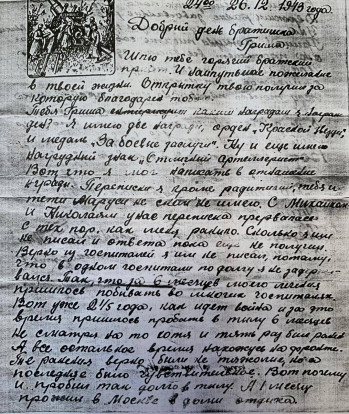 26.12.1943 года.
Добрый день братишка
Гриша
Шлю тебе горячий братский
И наилучшие пожелания
в твоей жизни. Открытку твою получил за
которую благодарю
Тебя Гриша интересует какими наградами я награж
ден? Я имею две награды, орден "Красной Звезды"
и медаль "За боевые заслуги". Ну и еще имею
Нагрудный знак, "Отличный артиллерист"
Вот это я мог написать в отношении
награды. Переписки я кроме родителей, тебя и
тети Маруси не с кем не имею. С Михаилом
и Николаем у нас переписка прервалась
с тех пор, как меня ранило. Сколько я им
не писал и ответа пока еще не получил.
Верно из госпиталей я им не писал, потому,
что в одном госпитале по долгу я не задер
вался. Так, что за 6 месяцев моего лечения
пришлось побывать во многих госпиталях.
Вот уже 2 1/2 года, как идет война и за это
время пришлось пробыть в тылу 6 месяцев
не смотря на то хотя и пять раз был ранен
А, все остальное время нахожусь на фронте.
Те ранения верно были не тяжелые, но а
последнее было чувствительное. Вот почему
и пробыл так долго в тылу. А 1 месяц
прожил в Москве в доме отдыха.